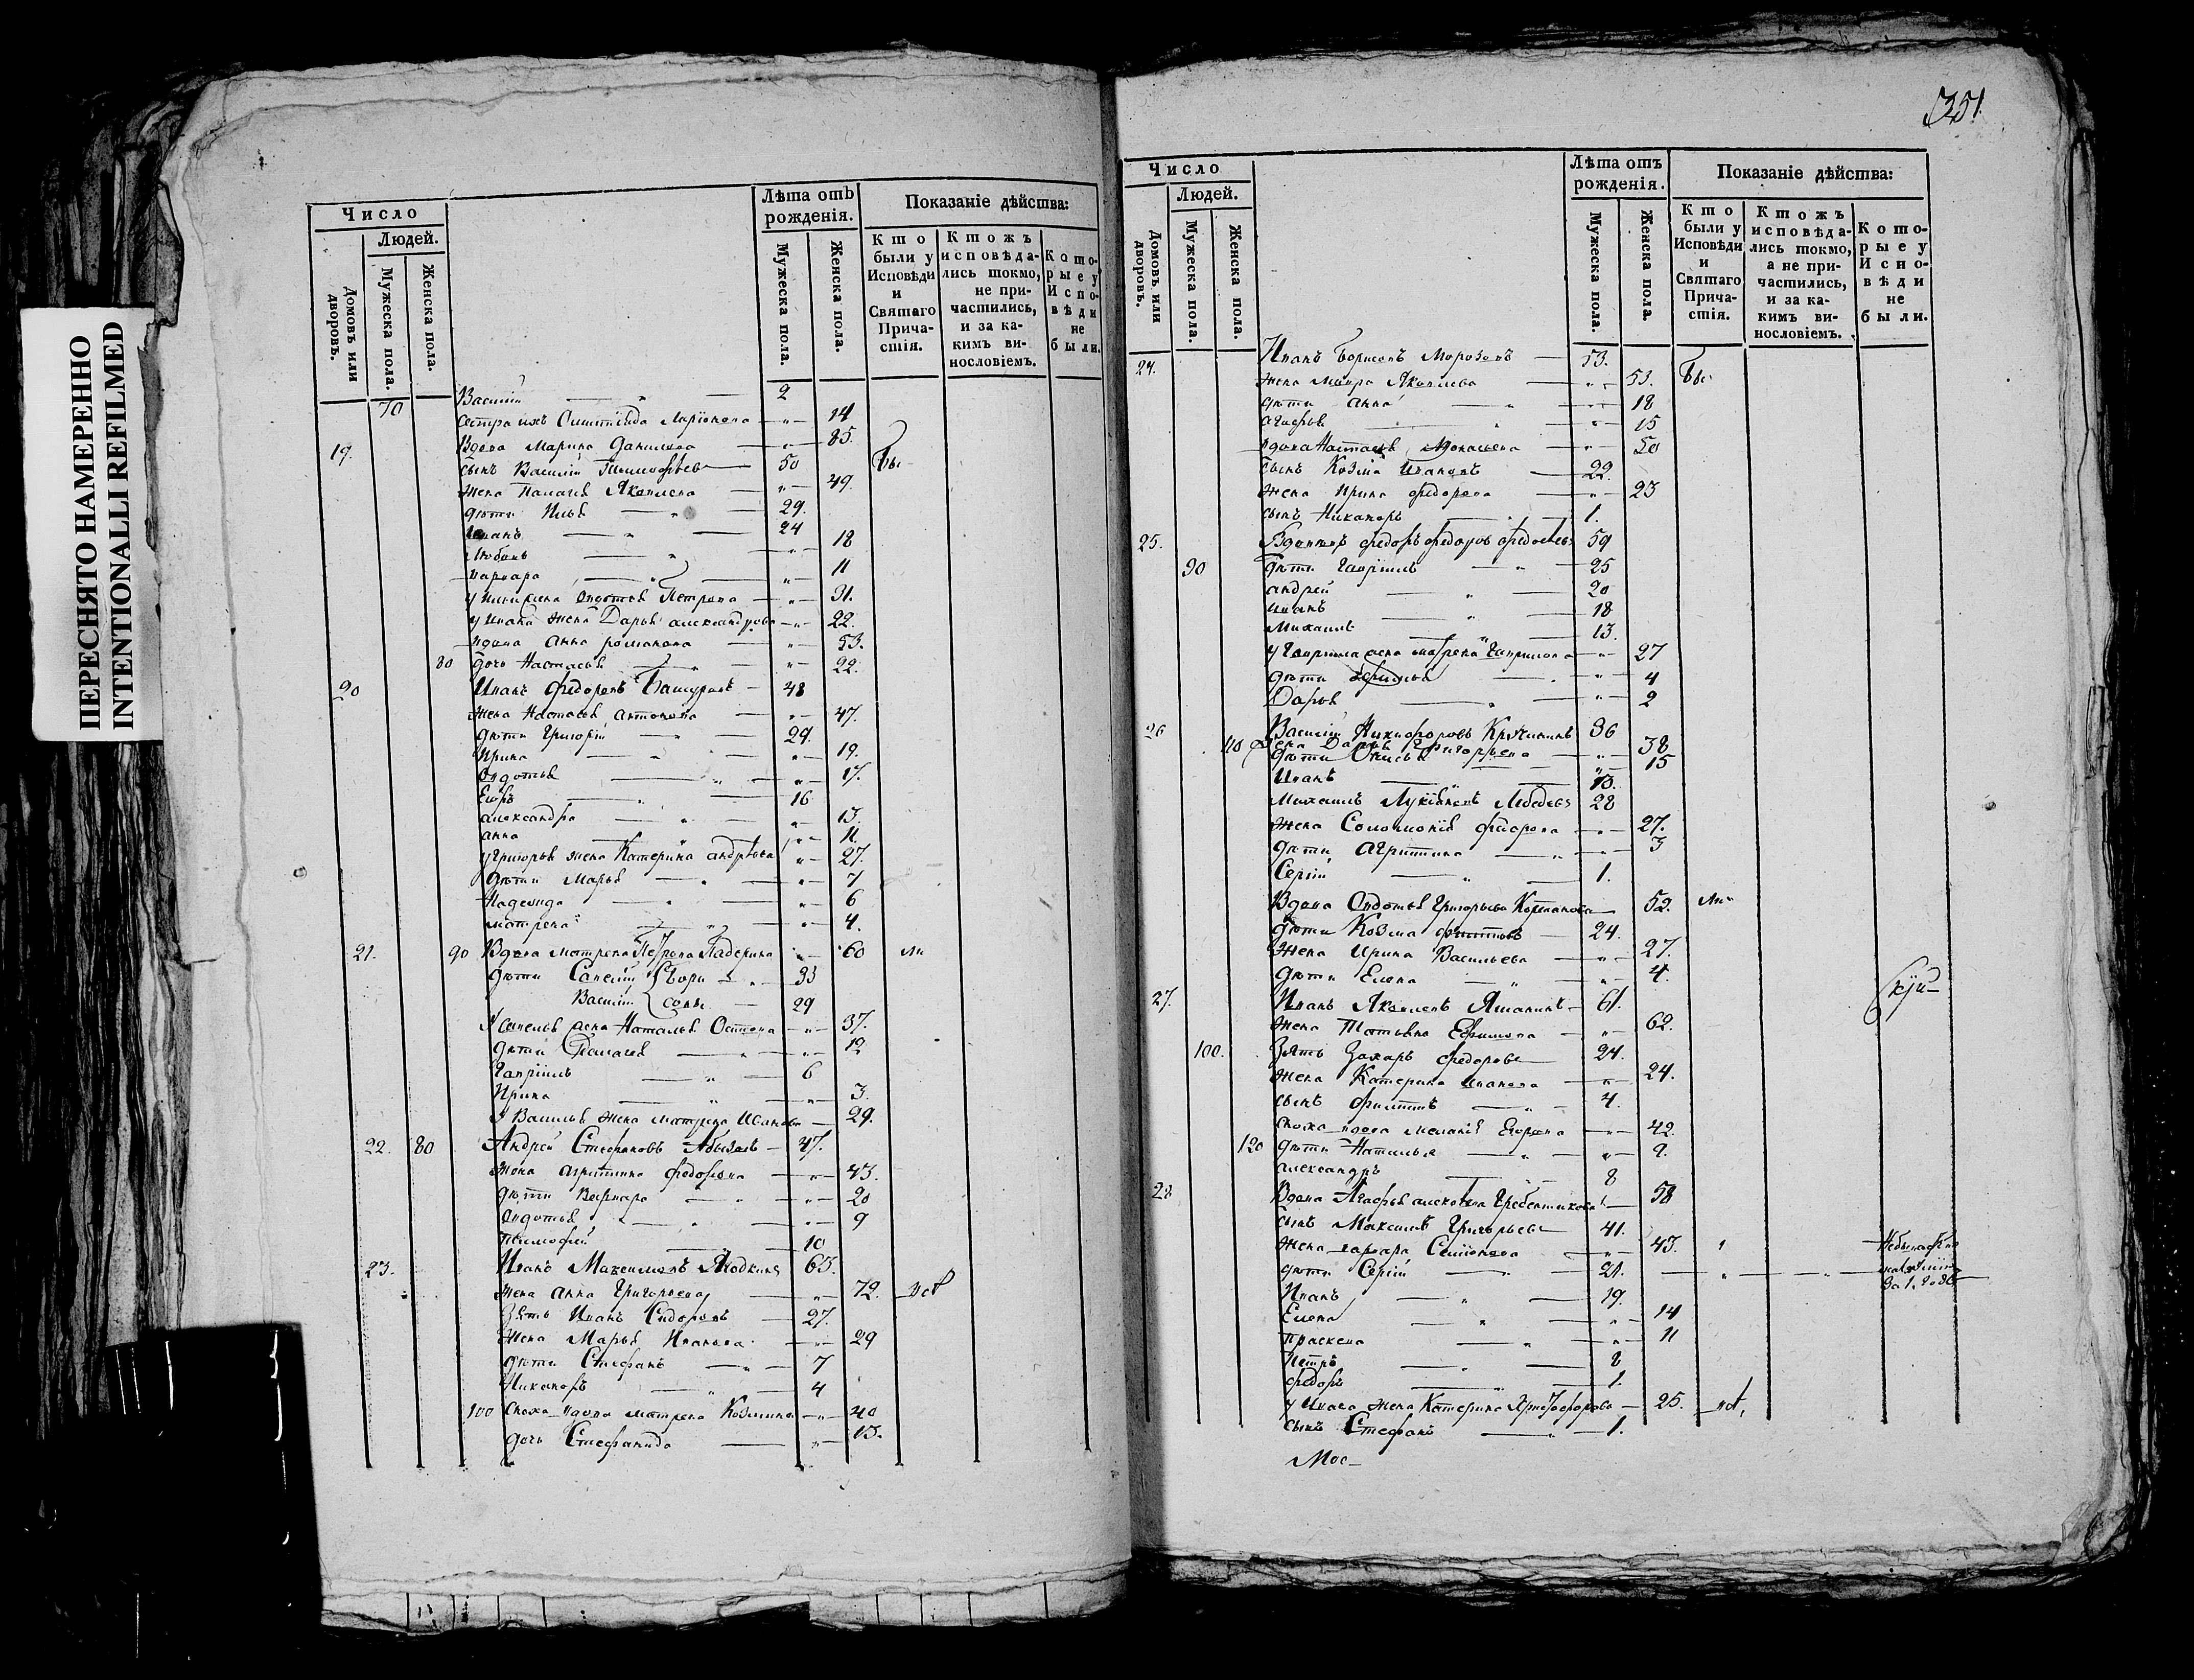 ПЕРЕСНЯТО НАМЕРЕННО
INTENTIONALLI REFILMED
351
Число
Людей.
Домовъ или дворовъ.
Мужеска пола.
Женска пола.
Лѣта отъ рожденія.
Мужеска пола.
Женска пола.
Показаніе дѣйства:
Кто были у Исповѣди и Святаго Причастія.
Ктожъ исповѣдались токмо, не причастились, и за какимъ винословіемъ.
Которые у Исповѣди не были.
70 Василій 2
сестра ихъ Ларіонова 14
19. Вдова Марина Данилова 85.
сынъ Василій Тимофѣевъ 50 бы
жена Палагея Яковлева 49.
дѣти Илья 29.
Иванъ 24
Любовь 18
варвара 11
у Ильи жена Авдотья Петрова 31.
у Ивана жена Дарья александрова 22.
вдова Анна романова 53.
80 дочь Настасья 22.
20 Иванъ Федоровъ 48
жена Настасья антонова 47.
дѣти Григорій 29.
Ирина 19.
Авдотья 17.
Егоръ 16
александра 13.
анна 11.
у Григорья жена Катерина андрѣева 27.
дѣти Марья 7
Надежда 6
матрена 4.
21. 90 Вдова матрена Петрова 60
дѣти Савелій 33
Василій 29
У савелья жена Наталья 37.
дѣти Палагея 12
Гавріилъ 6
Ирина 3.
У Василья жена матрена Иванова 29.
22. 80 Андрей Стефановъ 47.
жена агрипина федорова 43.
дѣти Варвара 20
Авдотья 9
тимофей 10
23. Иванъ Максимовъ 65.
жена анна Григорьева 72.
зять Иванъ Сидоровъ 27.
жена Марья Иванова 29
дѣти Стефанъ 7
Никаноръ 4
100 Сноха вдова матрена Козмина 40
дочь Стефанида 13.
Число
Людей.
Домовъ или дворовъ.
Мужеска пола.
Женска пола.
Лѣта отъ рожденія.
Мужеска пола.
Женска пола.
Показаніе дѣйства:
Кто были у Исповѣди и Святаго Причастія.
Ктожъ исповѣдались токмо, а не причастились, и за какимъ винословіемъ.
Которые у Исповѣди не были.
24. Иванъ Борисовъ Морозовъ 53.
жена Мавра Яковлева 53. бы
дѣти Анна 18
агафья 15
вдова Настасья 50
сынъ Козма Ивановъ 22.
жена Ирина федорова 23
сынъ Никаноръ 1.
25. Вдовецъ федоръ федоровъ 59
90 дѣти Гавріилъ 25
андрей 20
иванъ 18
Михаилъ 13.
у Гавриила жена матрена Гаврилова 27
дѣти 4
Дарья 2
26 Василій Никифоровъ 36
110 жена Дарья Григорьева 38
дѣти 15
Иванъ 13.
Михаилъ Лукіяновъ Лебедевъ 28
жена Соломонія федорова 27.
дѣти агрипина 3
Сергій 1.
Вдова Авдотья Григорьева 52.
дѣти Козма 24.
жена Ирина Васильева 27.
дѣти Елена 4.
27. Иванъ Яковлевъ 61.
жена Татьяна Ефимова 62.
100. Зять Захаръ федоровъ 24.
жена Катерина иванова 24.
сынъ филиппъ 4.
сноха вдова меланія Егорова 42.
120 дѣти Наталья 9.
александръ 8
28 Вдова Агафья Гребенникова 58
сынъ Максимъ Григорьевъ 41.
жена варвара Семіонова 43.
дѣти Сергій 21.
Иванъ 19.
Елена 14
праскева 11
Петръ 8
федоръ 1.
у Ивана жена Катерина 25.
сынъ Стефанъ 1.
Мос-